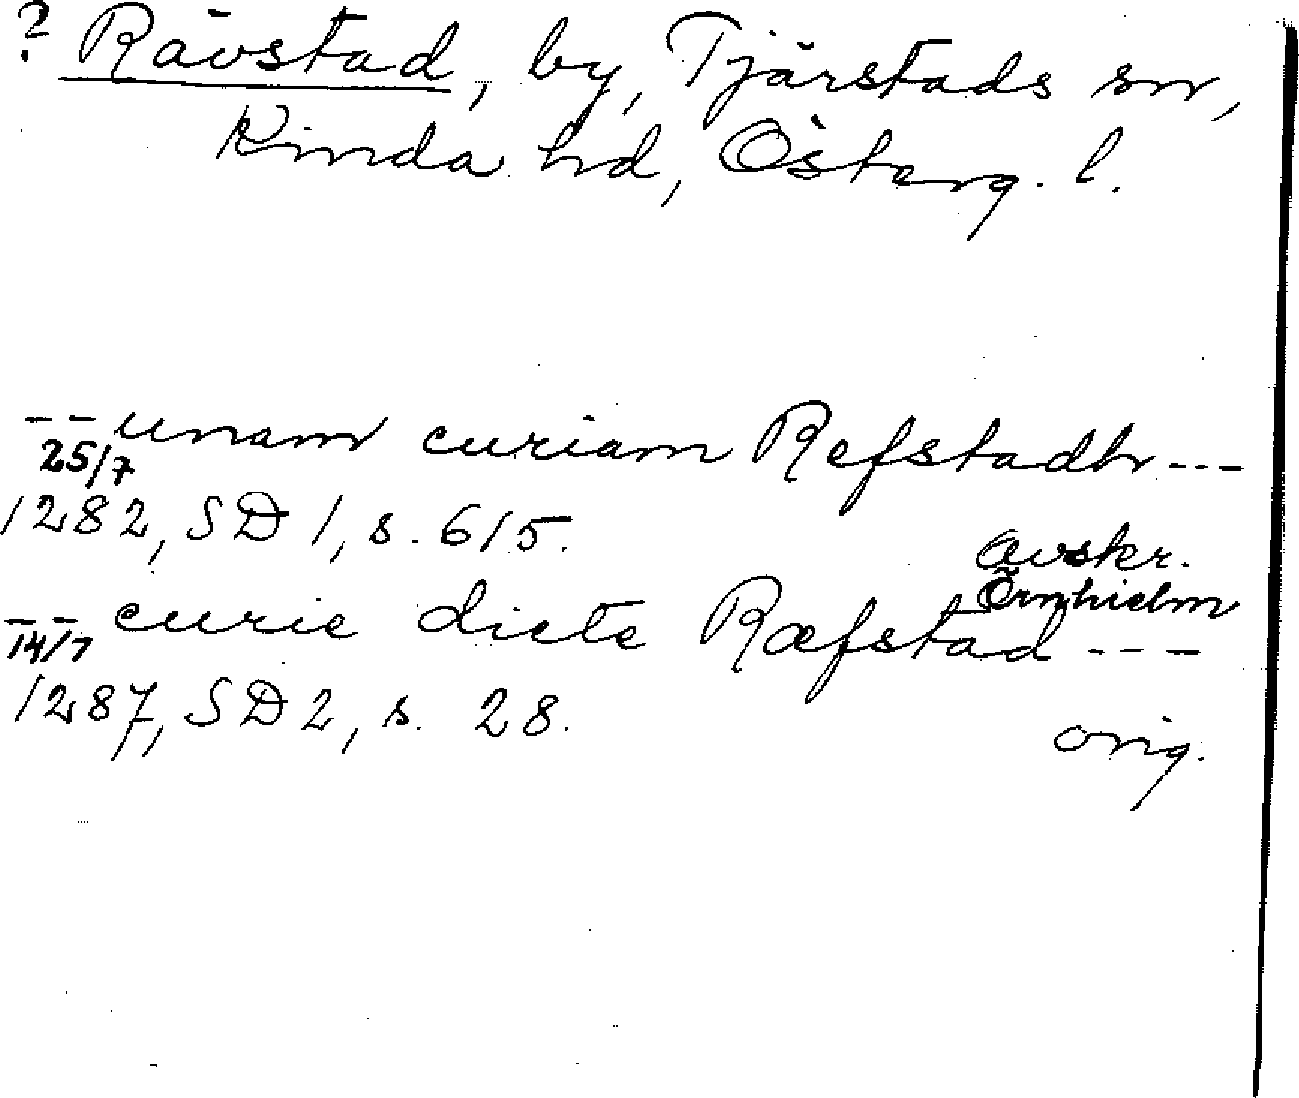 ? Rävstad, by, Tjärstads sn,
Kinda hd, Österg. l.
-- unam curiam Refstadh ---
25/7
1282, SD 1, s. 615.
avskr.
Örnhielm
-- curie dicte Ræfstad ---
14/7
1287, SD 2, s. 28.
orig.